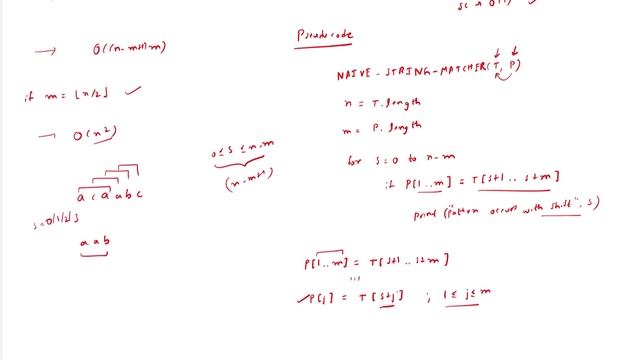 → O((n-m+1)m)
if m = ⌊n/2⌋ ✓
→ O(n²)
0 ≤ s ≤ n-m
(n-m+1)
a c a a b c
s=0/1/2/3
a a b
Pseudocode
NAIVE-STRING-MATCHER(T, P)
n = T.length
m = P.length
for s=0 to n-m
if P[1..m] = T[s+1..s+m]
print ("Pattern occurs with shift", s)
P[1..m] = T[s+1..s+m]
✓P[j] = T[s+j] ; 1 ≤ j ≤ m